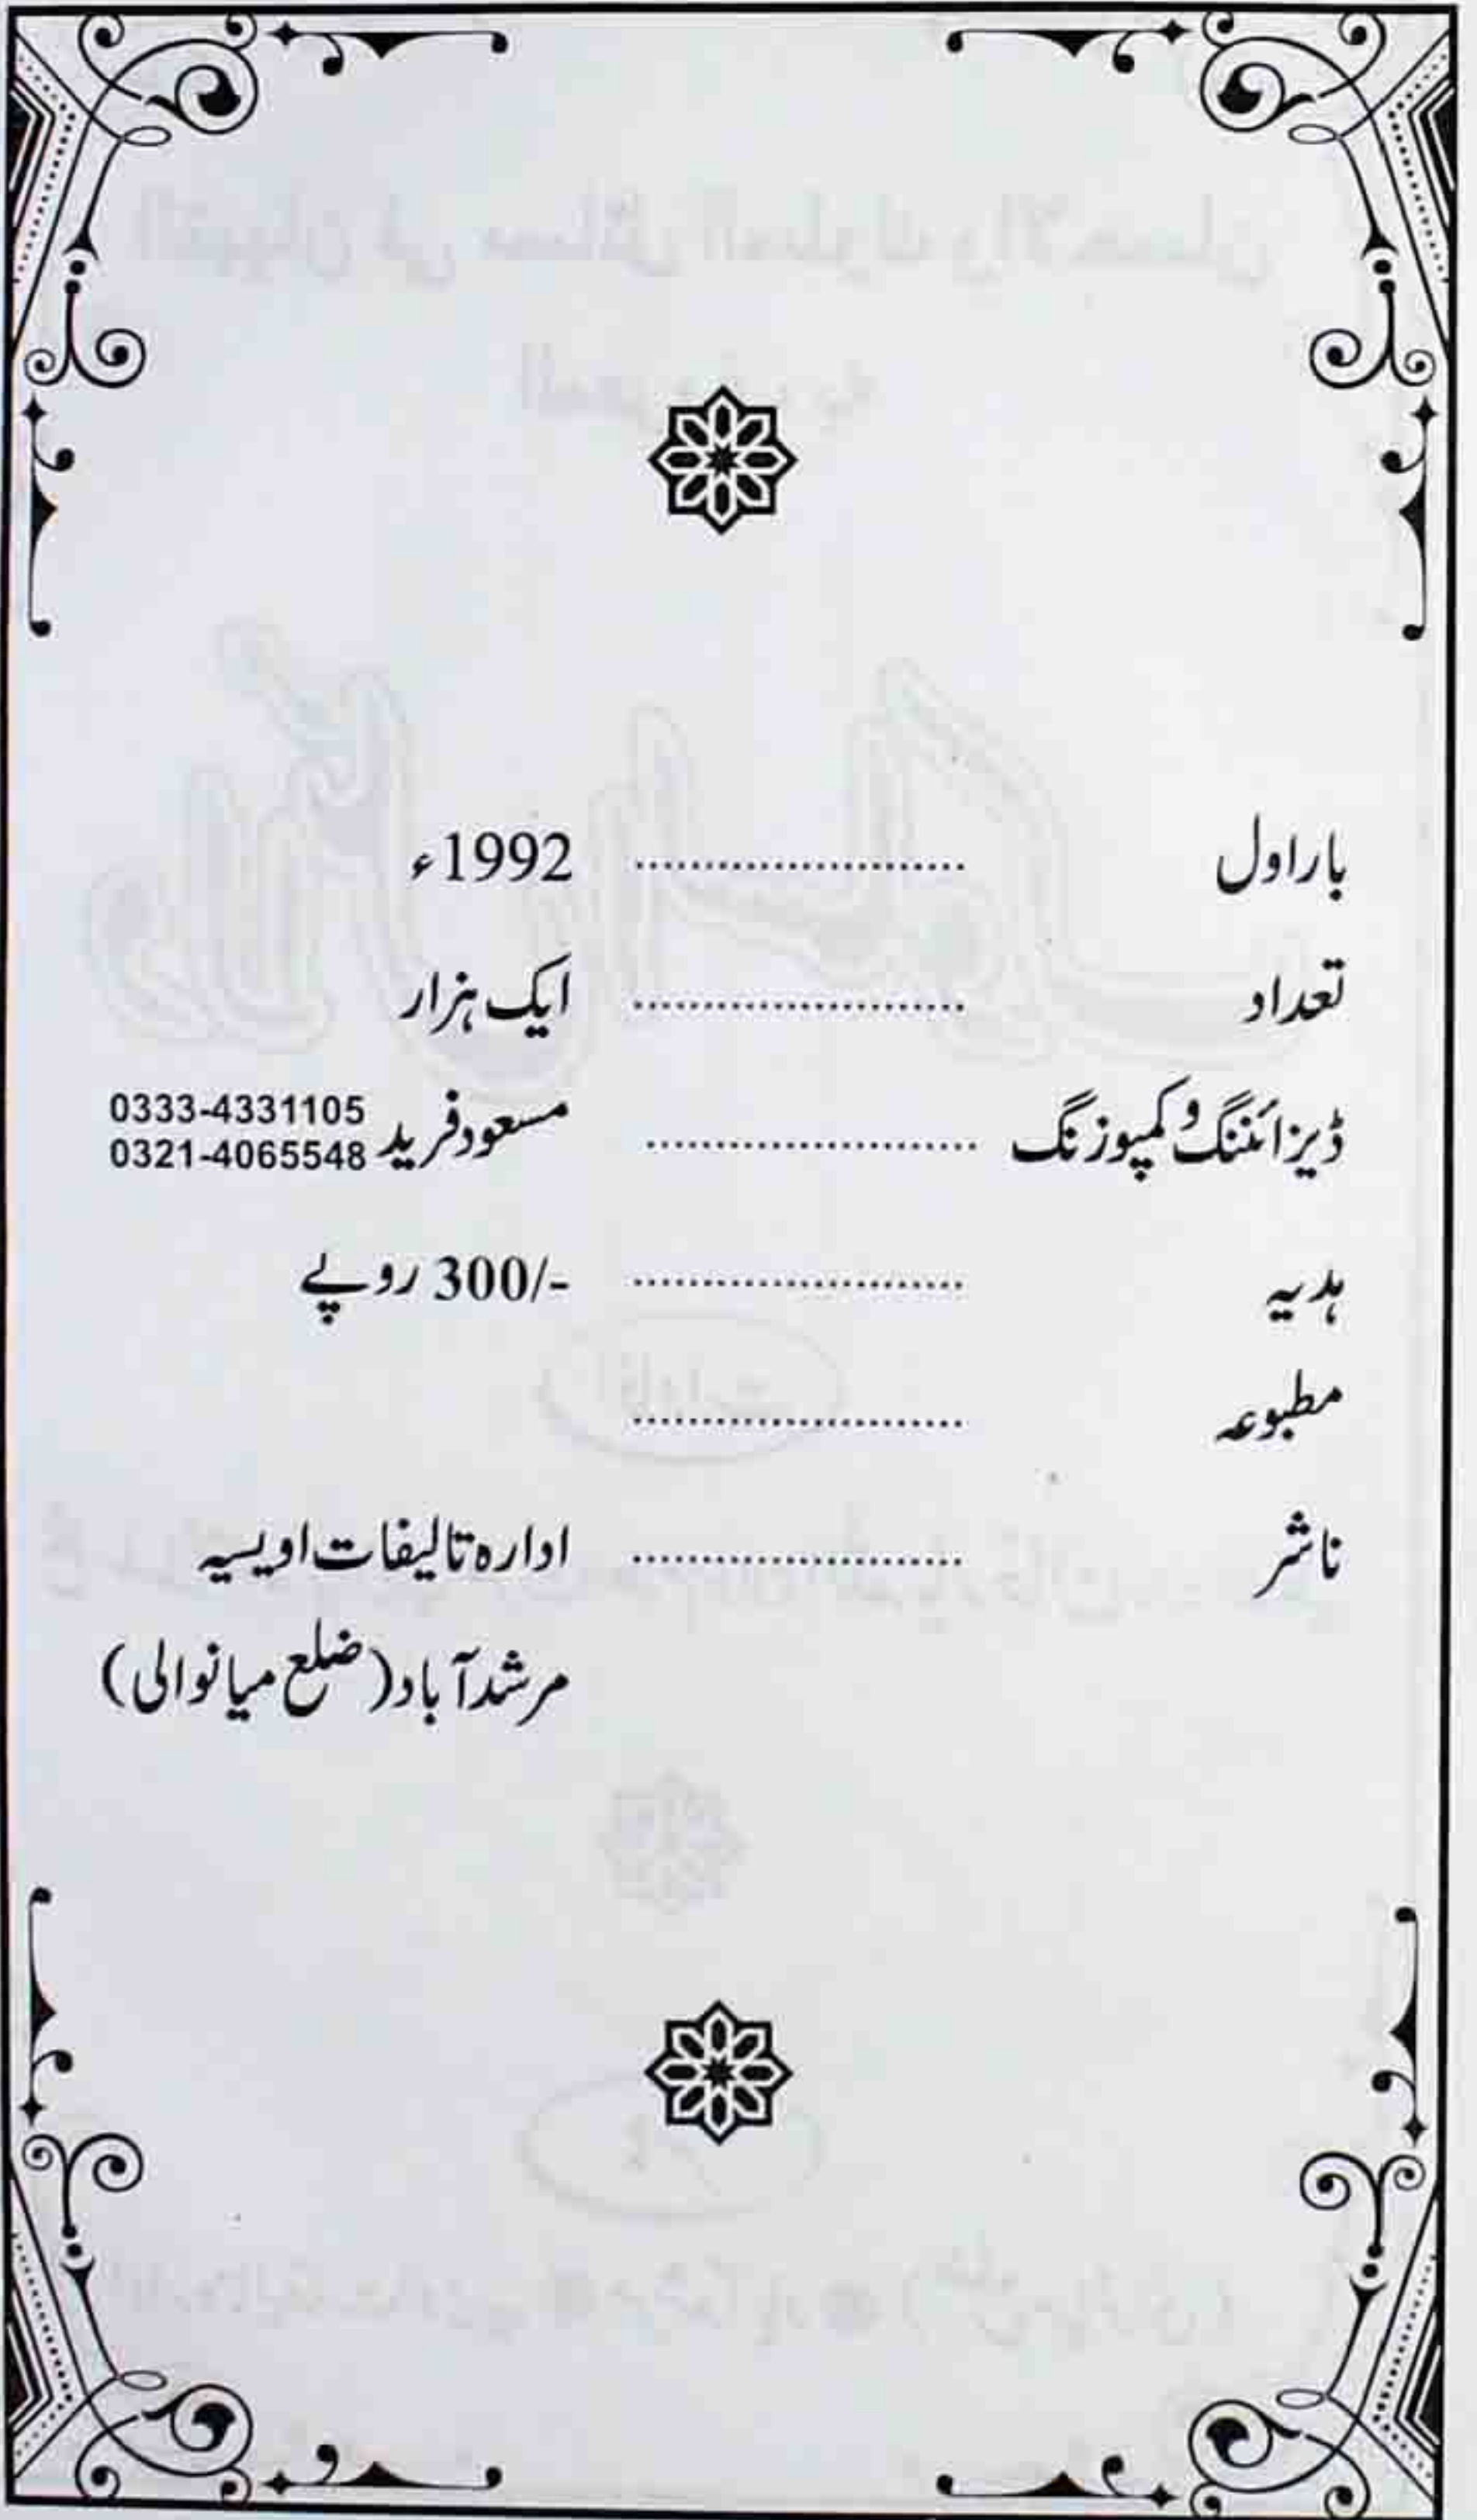 بار اول ........................ 1992ء
تعداد ........................ ایک ہزار
ڈیزائننگ و کمپوزنگ ........................ مسعود فرید 0333-4331105
0321-4065548
ہدیہ ........................ 300/- روپے
مطبوعہ ........................
ناشر ........................ ادارہ تالیفات اویسیہ
مرشد آباد (ضلع میانوالی)